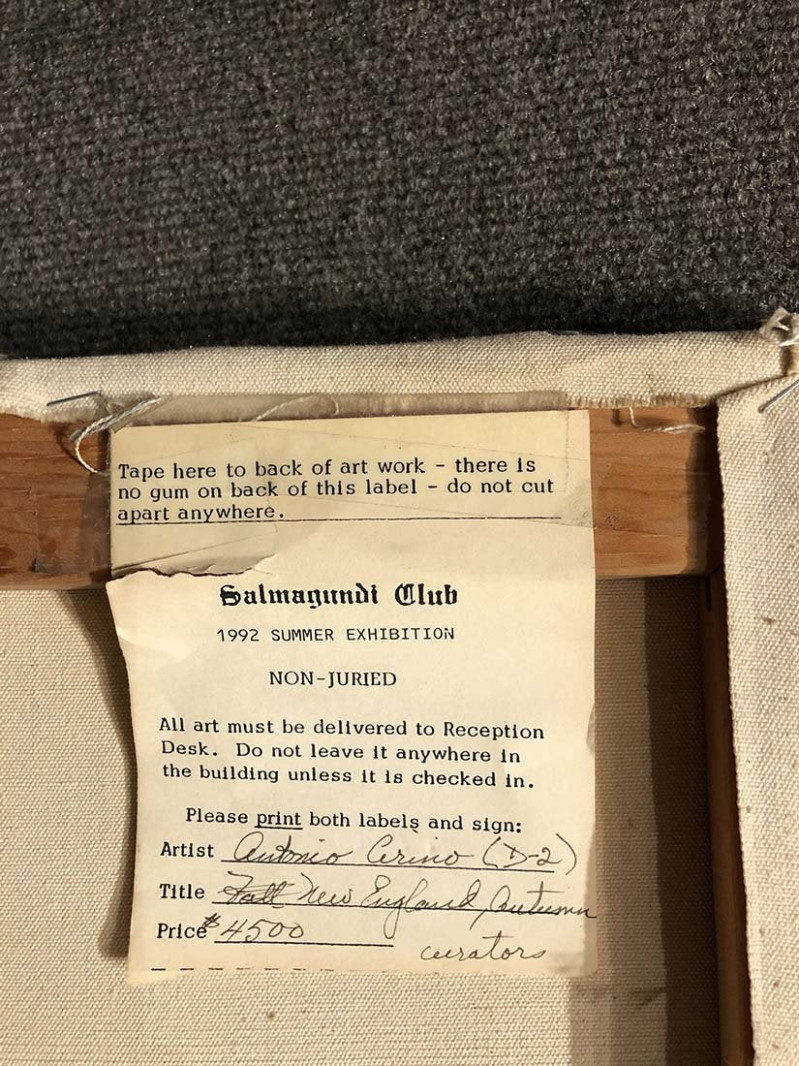 Tape here to back of art work - there is
no gum on back of this label - do not cut
apart anywhere.
Salmagundi Club
1992 SUMMER EXHIBITION
NON-JURIED
All art must be delivered to Reception
Desk. Do not leave it anywhere in
the building unless it is checked in.
Please print both labels and sign:
Artist Antonio Cirino (D-2)
Title Fall New England, Autumn
Price $4500
curators